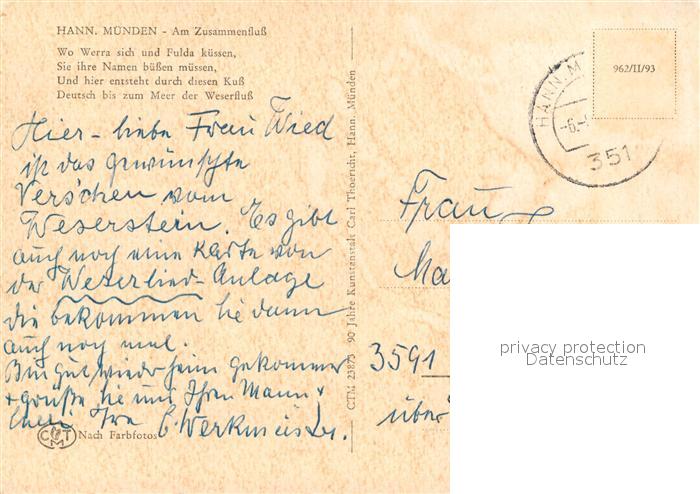 HANN. MÜNDEN - Am Zusammenfluß
Wo Werra sich und Fulda küssen,
Sie ihre Namen büßen müssen,
Und hier entsteht durch diesen Kuß
Deutsch bis zum Meer der Weserfluß
Hier - liebe Frau Wied
ist das gewünschte
Verschen vom
Weserstein. Es gibt
auch noch eine Karte von
der Weserlied-Anlage
die bekommen Sie dann
auch noch mal.
Bin gut wieder heim gekommen
+ grüße Sie und Ihren Mann +
Ihre E. Werkmeister.
CTM
Nach Farbfotos
CTM 23875 90 Jahre Kunstanstalt Carl Thoericht, Hann. Münden
962/II/93
HANN. M
-6.-
351
Frau
Ma
3591
über
privacy protection
Datenschutz